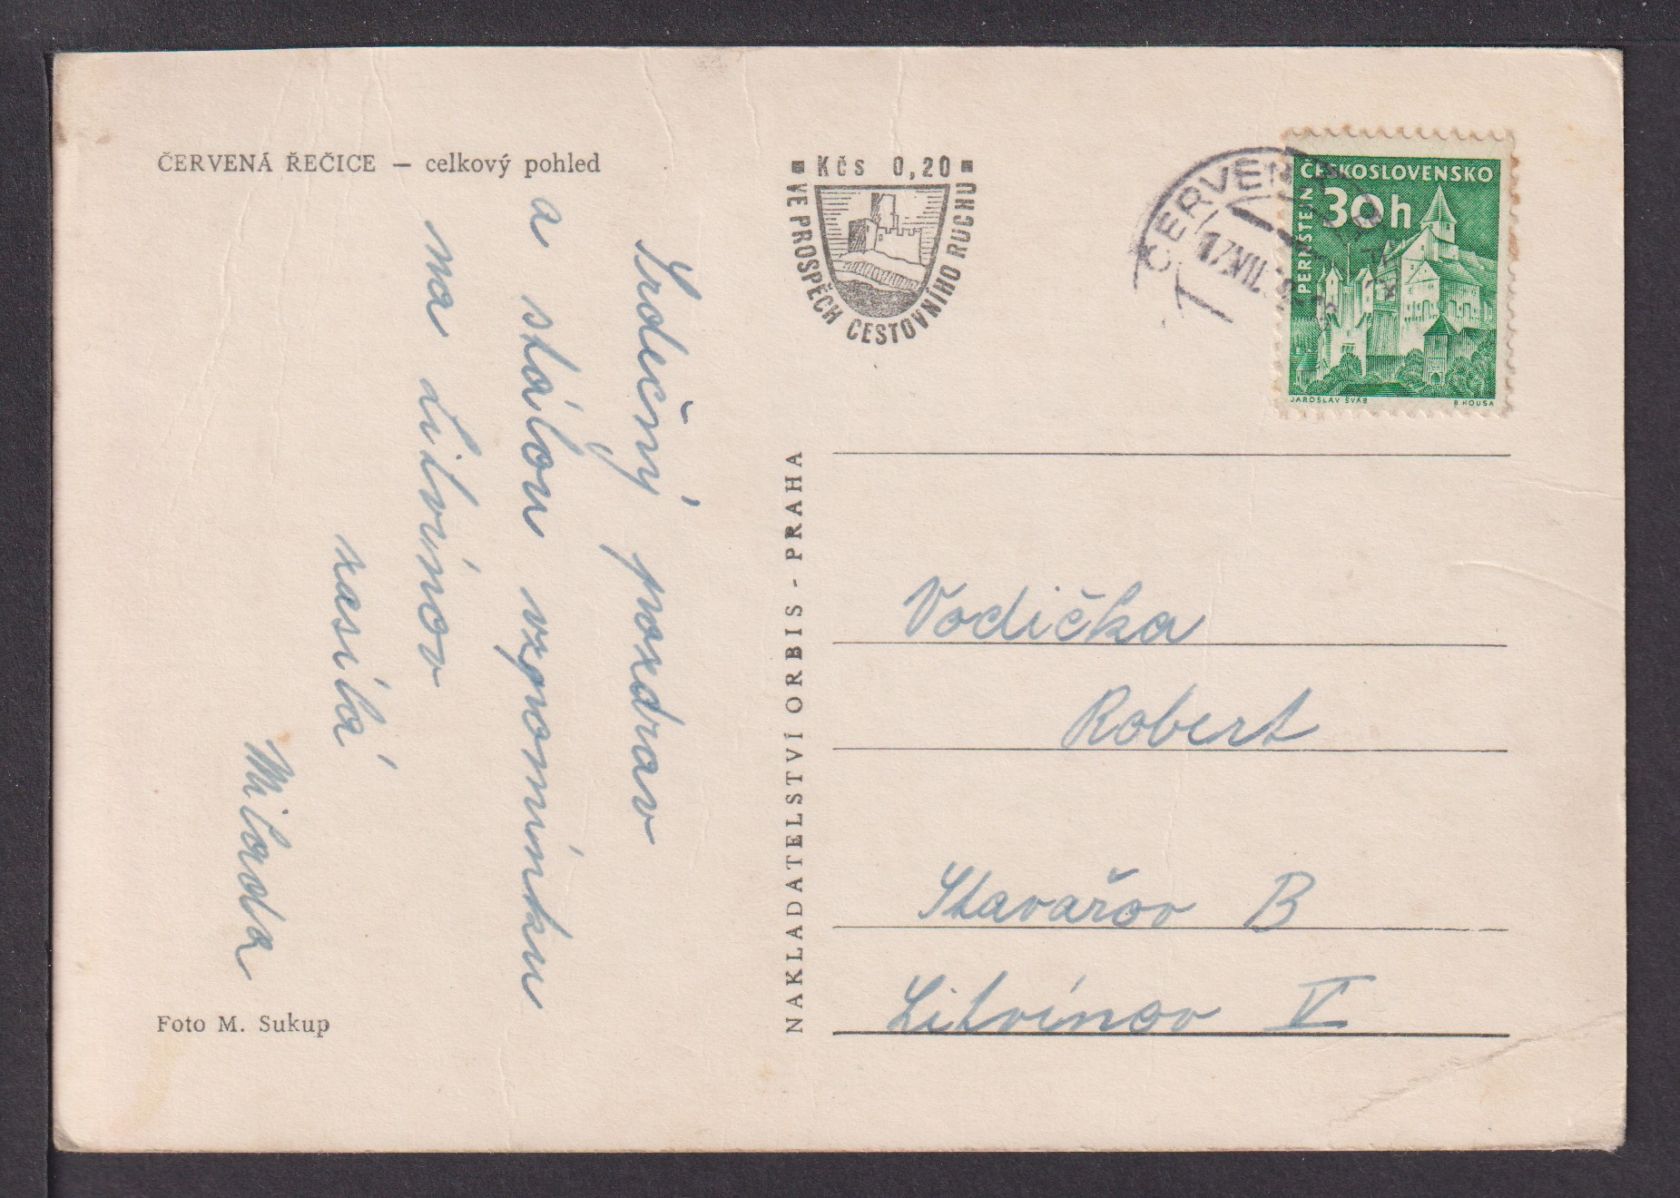 ČERVENÁ ŘEČICE — celkový pohled
Srdečný pozdrav
a stálou vzpomínku
na Litvínov
zasílá
Milada
Foto M. Sukup
NAKLADATELSTVÍ ORBIS - PRAHA
Kčs 0,20
VE PROSPĚCH CESTOVNÍHO RUCHU
ČERVEN
17.VII.
ČESKOSLOVENSKO
30h
PERNŠTEJN
JAROSLAV ŠVÁB
B. HOUSA
Vodička
Robert
Stavařov B
Litvínov V